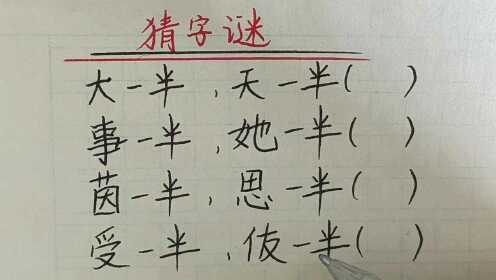 猜字谜
大一半，天一半（ ）
事一半，她一半（ ）
茵一半，思一半（ ）
受一半，伎一半（ ）